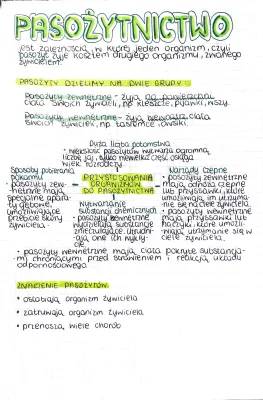 PASOŻYTNICTWO
jest zależnością, w której jeden organizm, czyli
pasożyt żyje kosztem drugiego organizmu, zwanego
żywicielem.
PASOŻYTY DZIELIMY NA DWIE GRUPY
Pasożyty zewnętrzne - żyją na powierzchni
ciała swoich żywicieli, np. kleszcze, pijawki, wszy.
Pasożyty wewnętrzne - żyją wewnątrz ciała
swoich żywicieli, np. tasiemce, owsiki.
Duża liczba potomstwa
• większość pasożytów wytwarza ogromną
liczbę jaj, tylko niewielka część osiąga
wiek rozrodczy
Sposoby pobierania
pokarmu
• pasożyty zewnętrzne mają
specjalne aparaty gębowe,
umożliwiające
przebicie skóry
żywiciela.
PRZYSTOSOWANIA
ORGANIZMÓW
DO PASOŻYTNICTWA
Wytwarzanie
substancji chemicznych
• pasożyty zewnętrzne
wydzielają substancje
znieczulające, utrudniają
one ich wykrycie.
Narządy czepne
• pasożyty zewnętrzne
mają odnóża czepne
lub przyssawki, które
umożliwiają im utrzymanie
się na ciele żywiciela.
• pasożyty wewnętrzne
mają przyssawki lub
haczyki, które umożliwiają
utrzymanie się w
ciele żywiciela.
• pasożyty wewnętrzne mają ciała pokryte substancjami
chroniącymi przed strawieniem i reakcją układu
odpornościowego.
ZNACZENIE PASOŻYTÓW
• osłabiają organizm żywiciela
• zatruwają organizm żywiciela
• przenoszą wiele chorób